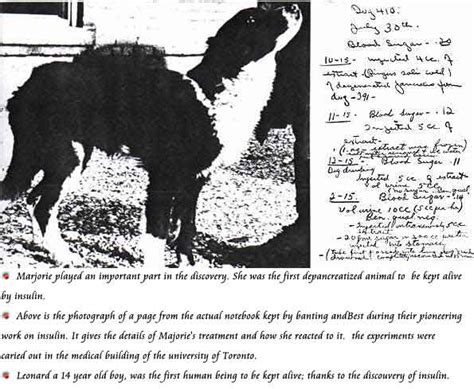 Dog 410.
July 30th.
Blood Sugar - .20
10-15 - injected 4 cc. of
extract (Ringer's solu cold)
of degenerated pancreas from
dog - 391 -
11-15 - Blood Sugar - .12
Injected 5 cc. of
extract.
12-15 - Blood Sugar .11
Dog drinking
Injected 5 cc. of extract
2-15 - Blood Sugar - .14
Vol urine 10 cc (5 cc per hr)
Ben. qual neg.
Marjorie played an important part in the discovery. She was the first depancreatized animal to be kept alive
by insulin.
Above is the photograph of a page from the actual notebook kept by banting andBest during their pioneering
work on insulin. It gives the details of Majorie's treatment and how she reacted to it. the experiments were
caried out in the medical building of the university of Toronto.
Leonard a 14 year old boy, was the first human being to be kept alive; thanks to the discovery of insulin.